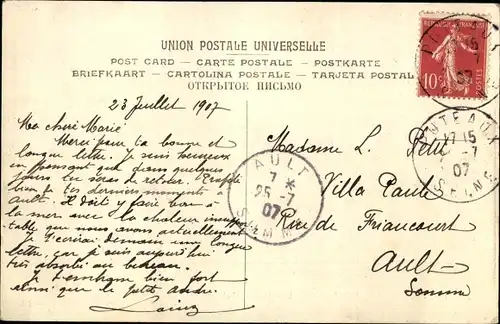 UNION POSTALE UNIVERSELLE
POST CARD — CARTE POSTALE — POSTKARTE
BRIEFKAART — CARTOLINA POSTALE — TARJETA POSTAL
ОТКРЫТОЕ ПИСЬМО
10c
POSTES
PUTEAUX
17 15
-7
07
SEINE
AULT
7 *
25 -7
07
SOMME
23 Juillet 1907
Ma chère Marie
Merci pour ta bonne et
longue lettre. Je suis heureux
en pensant que dans quelques
jours tu seras de retour. Profite
bien de tes derniers moments à
Ault. Il doit y faire bon à
la mer avec la chaleur insuppor
table que nous avons actuellement
Je t'écrirai demain une longue
lettre, car je suis aujourd'hui
très absorbé au bureau.
Je t'embrasse bien fort
ainsi que le petit André.
Madame L. Petit
Villa Paule
Rue de Friaucourt
Ault
Somme